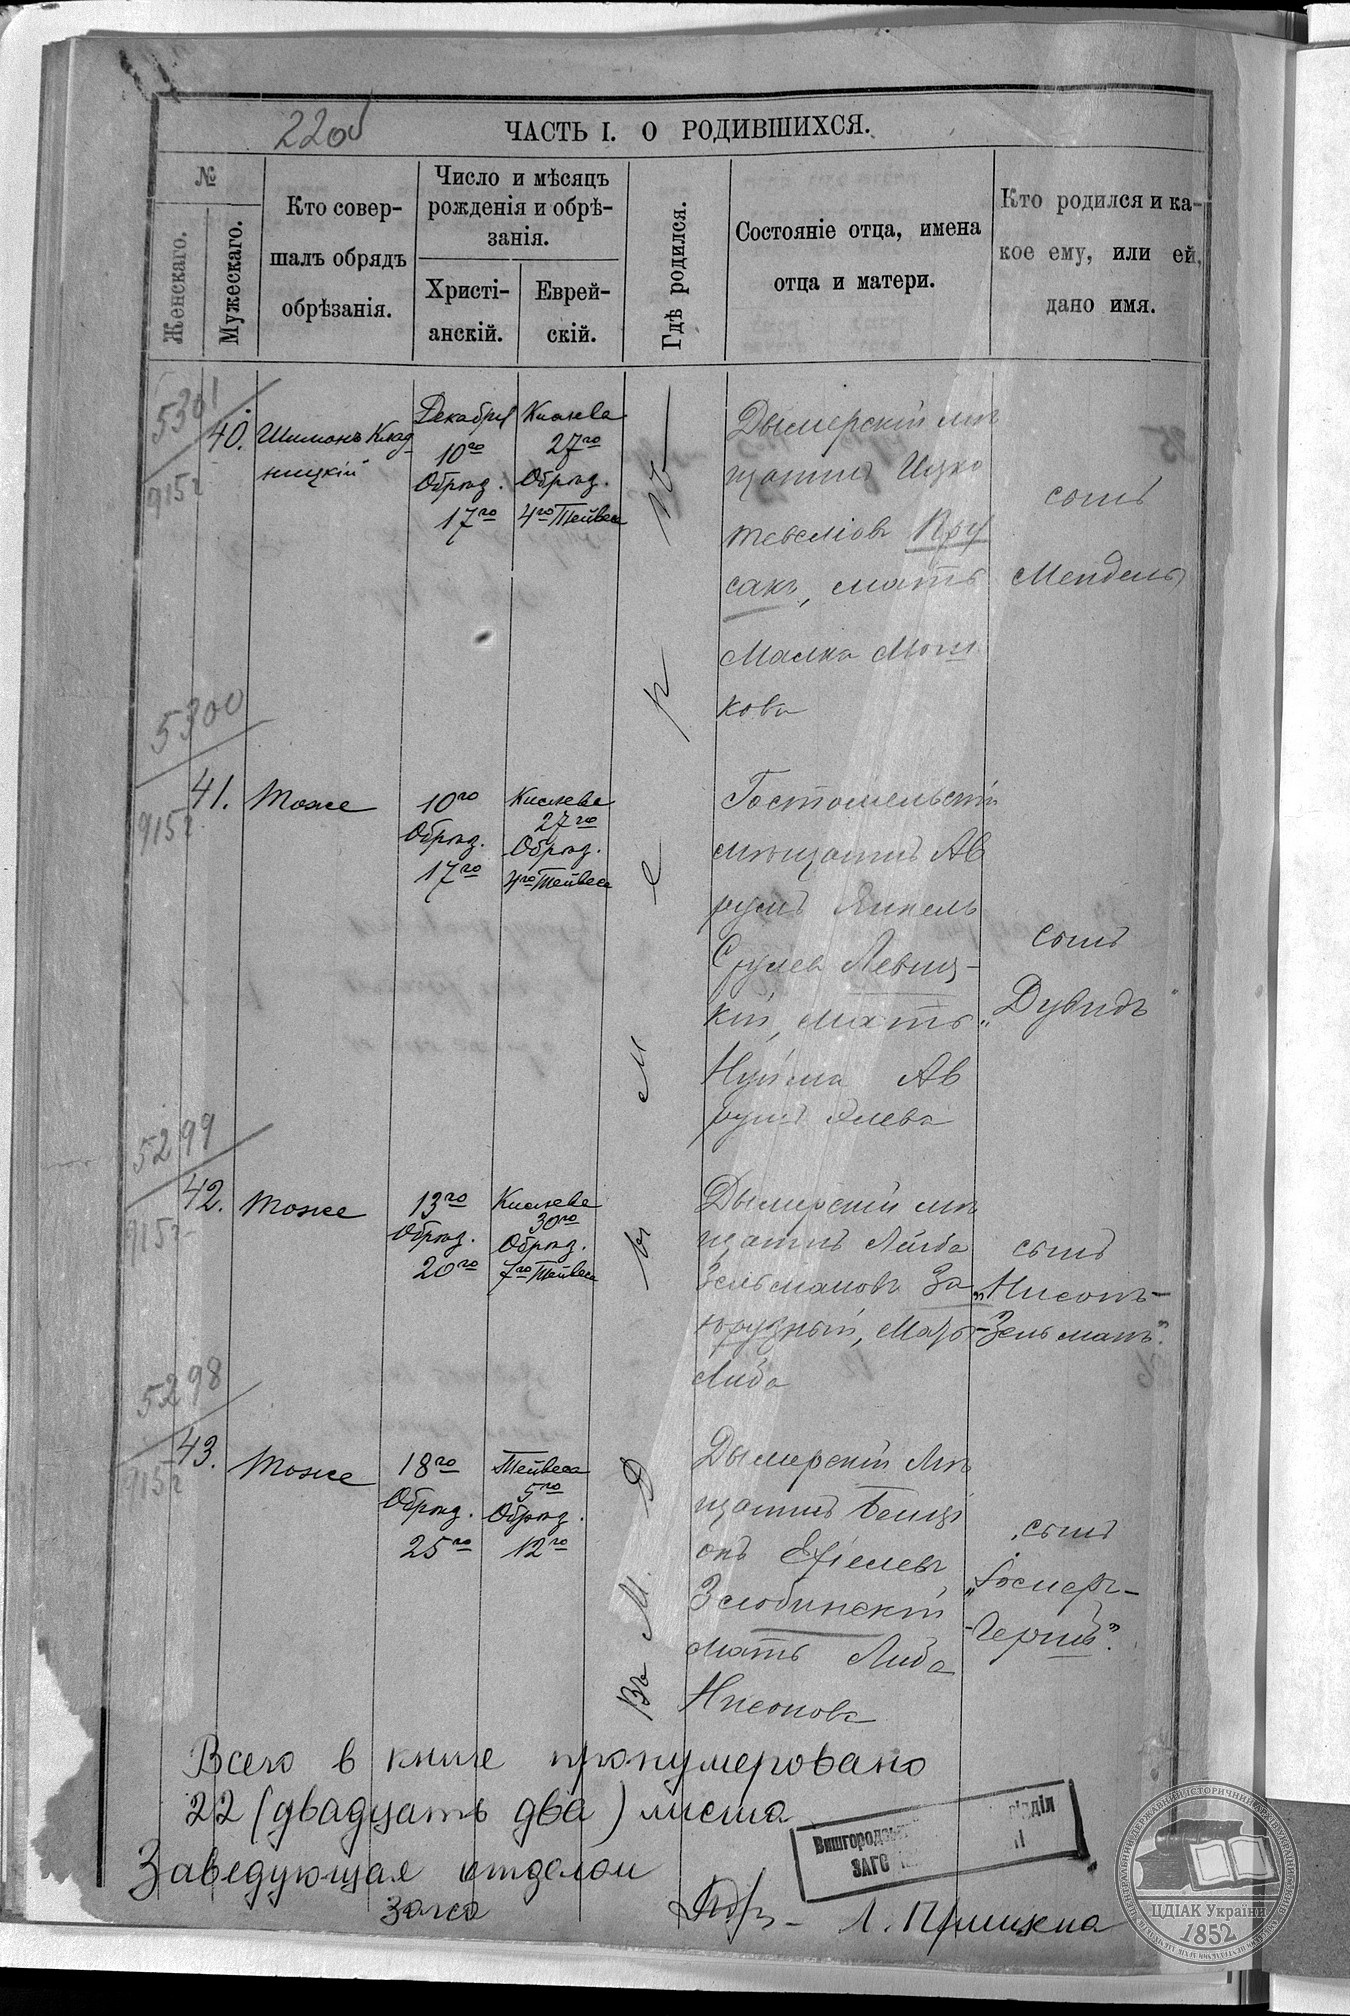 22об
ЧАСТЬ I. О РОДИВШИХСЯ.
№
Женскаго.
Мужескаго.
Кто совер-
шалъ обрядъ
обрѣзанія.
Число и мѣсяцъ
рожденія и обрѣ-
занія.
Христі-
анскій.
Еврей-
скій.
Гдѣ родился.
Состояніе отца, имена
отца и матери.
Кто родился и ка-
кое ему, или ей,
дано имя.
5301
9152
40.
Шимонъ Клад-
ницкій
Декабря
10го
Обрѣз.
17го
Кислева
27го
Обрѣз.
4го Тейвеса
Дымерскій мѣ
щанинъ Ицко
Тевеліовъ Пру
сакъ, мать
Малка Мош
кова
сынъ
Мендель
5300
9152
41.
Тоже
10го
Обрѣз.
17го
Кислева
27го
Обрѣз.
4го Тейвеса
Гостомельскій
мѣщанинъ Ав
румъ Янкель
Срулев Левиц-
кій, мать
Ав
сынъ
„Дувидъ
5299
9152
42.
Тоже
13го
Обрѣз.
20го
Кислева
30го
Обрѣз.
7го Тейвеса
Дымерскій мѣ
щанинъ Лейба
Зельмановъ За
мать
Либа
сынъ
„Нисонъ-
Зельманъ“.
5298
9152
43.
Тоже
18го
Обрѣз.
25го
Тейвеса
5го
Обрѣз.
12го
Дымерскій мѣ
щанинъ Бенці
онъ
Злобинскій
мать Либа
Нисонова
сынъ
Въ М. Дымерѣ
Всего в книге пронумеровано
22 (двадцать два) листа
Заведующая отделом
загса
Вишгородський відділ
ЗАГС
ЦДІАК України
1852